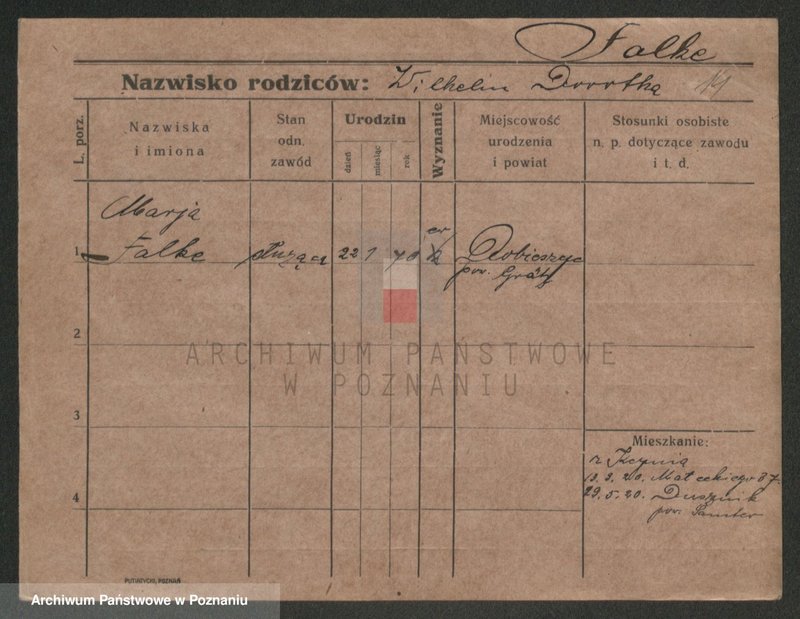 Falke
Nazwisko rodziców: Wilhelm Dorothą
L. porz.
Nazwiska
i imiona
Stan
odn.
zawód
Urodzin
dzień
miesiąc
rok
Wyznanie
Miejscowość
urodzenia
i powiat
Stosunki osobiste
n. p. dotyczące zawodu
i t. d.
Marja
1 Falke służąca 22 1 70 ew
pow. Grätz
2
ARCHIWUM PAŃSTWOWE
W POZNANIU
3
Mieszkanie:
z Kcynia
13. 3. 20. Małeckiego 37
4
29. 5. 20. Dusznik
pow. Samter
PUTIATYCKI, POZNAŃ
Archiwum Państwowe w Poznaniu